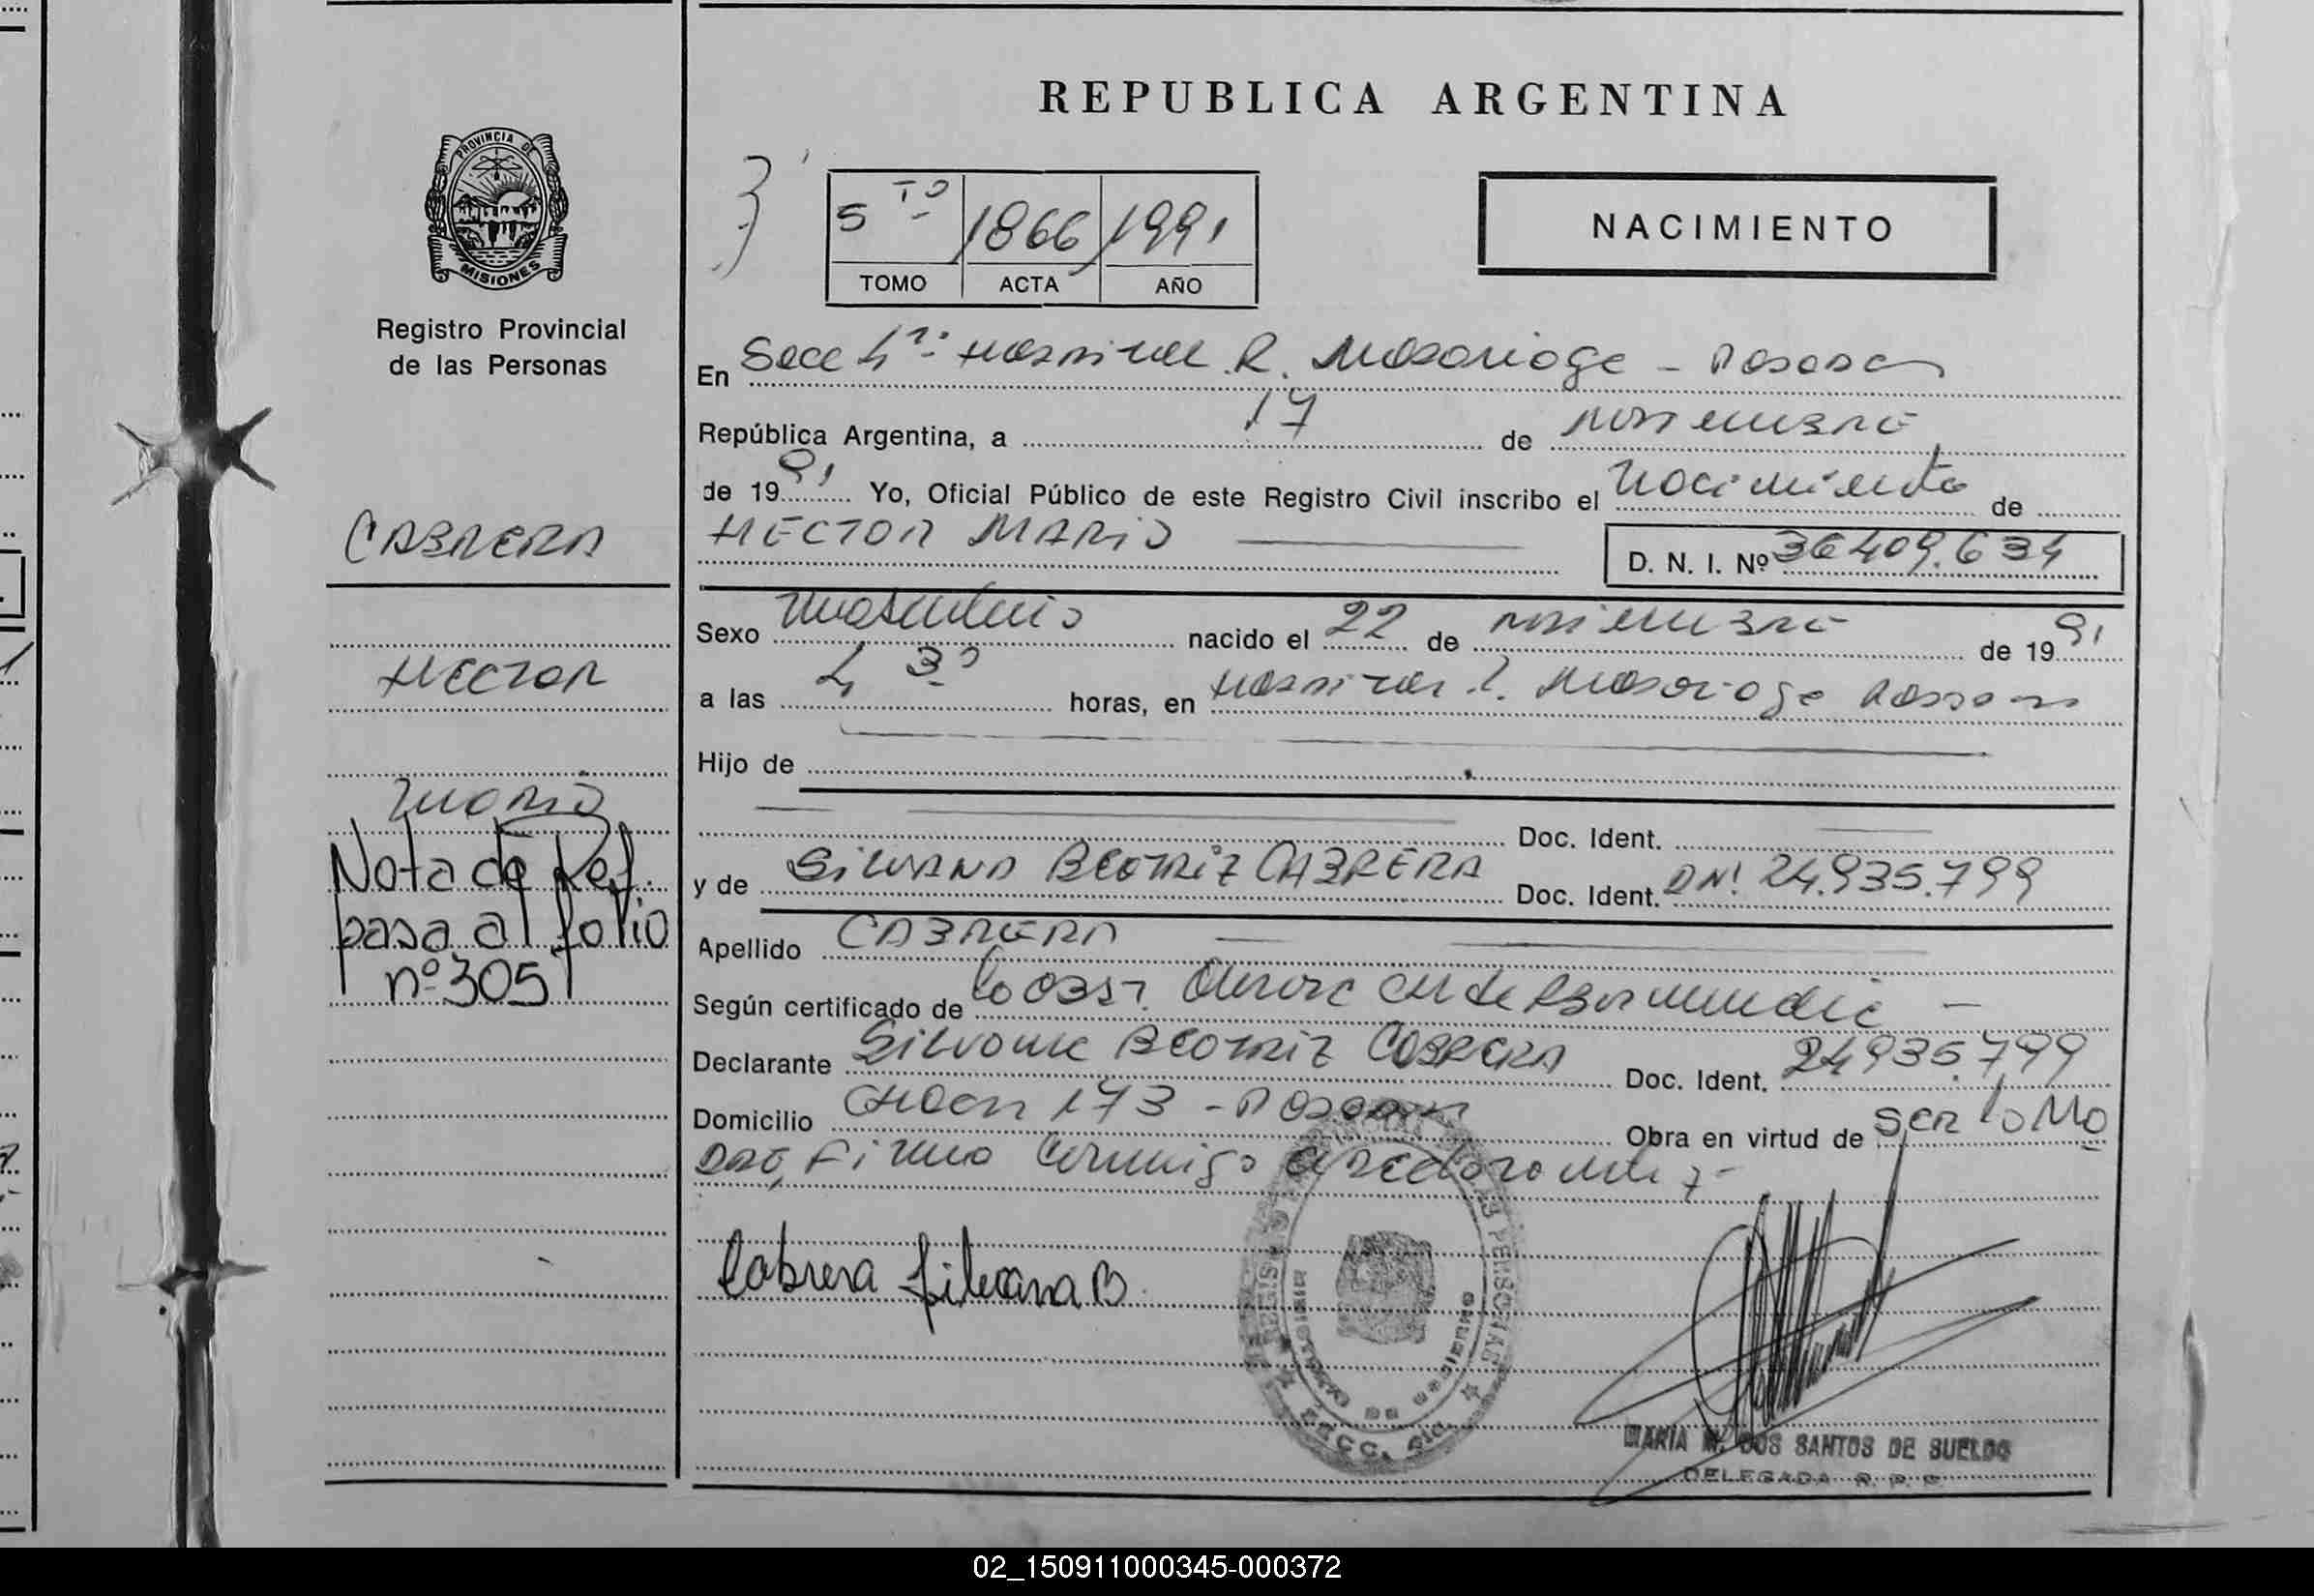 REPUBLICA ARGENTINA
PROVINCIA DE
MISIONES
Registro Provincial
de las Personas
5to 1866 1991
TOMO ACTA AÑO
NACIMIENTO
En Secc 4ta Hospital R. Madariaga - Posadas
República Argentina, a 17 de noviembre
de 1991 Yo, Oficial Público de este Registro Civil inscribo el nacimiento de
HECTOR MARIO
D. N. I. Nº 36409.634
CABRERA
HECTOR
Mario
Nota de Ref.
pasa al folio
nº 305
Sexo masculino nacido el 22 de noviembre de 1991
a las 4 30 horas, en Hospital R. Madariaga Posadas
Hijo de
Doc. Ident.
y de SILVANA BEATRIZ CABRERA Doc. Ident. DNI 24.935.799
Apellido CABRERA
Según certificado de la Obst.
Declarante Silvana BEATRIZ CABRERA Doc. Ident. 24935.799
Domicilio 173 - Posadas Obra en virtud de SER la Ma
dre, Firma conmigo
Cabrera Silvana B.
MARIA M. DOS SANTOS DE SUELDO
DELEGADA R. P. P.
02_150911000345-000372